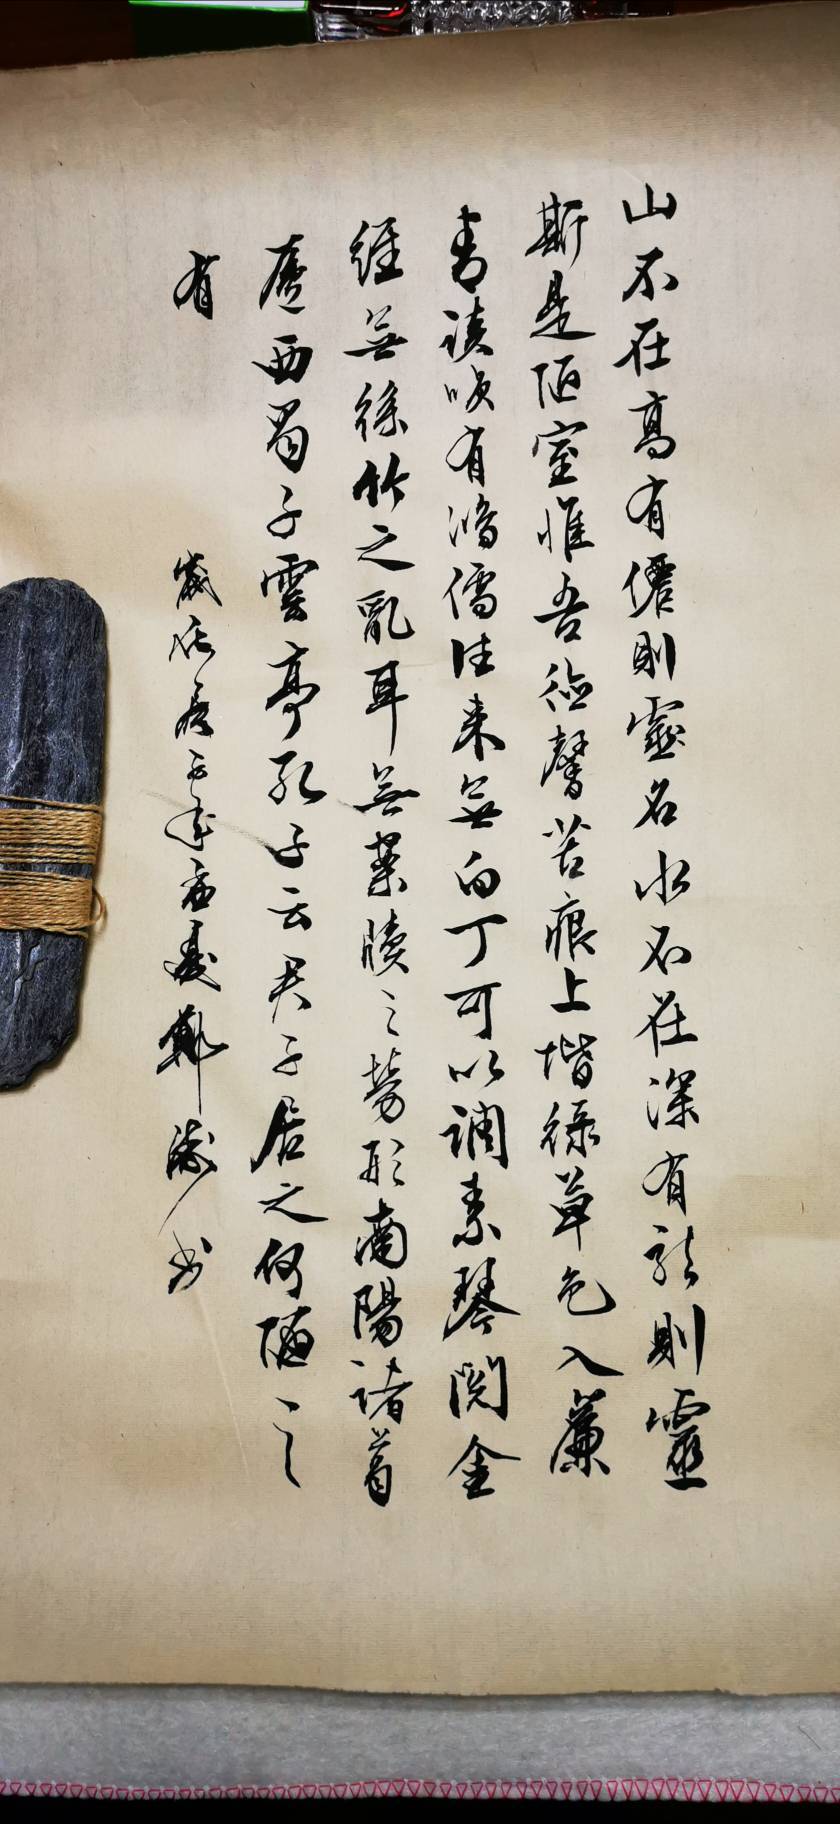 山不在高有僊則靈名水不在深有龍則靈
斯是陋室惟吾德馨苔痕上堦綠草色入簾
青談咲有鴻儒往来無白丁可以調素琴閱金
經無絲竹之亂耳無案牘之勞形南陽諸葛
廬西蜀子雲亭孔子云君子居之何陋之
有
歲年孟夏鄭书